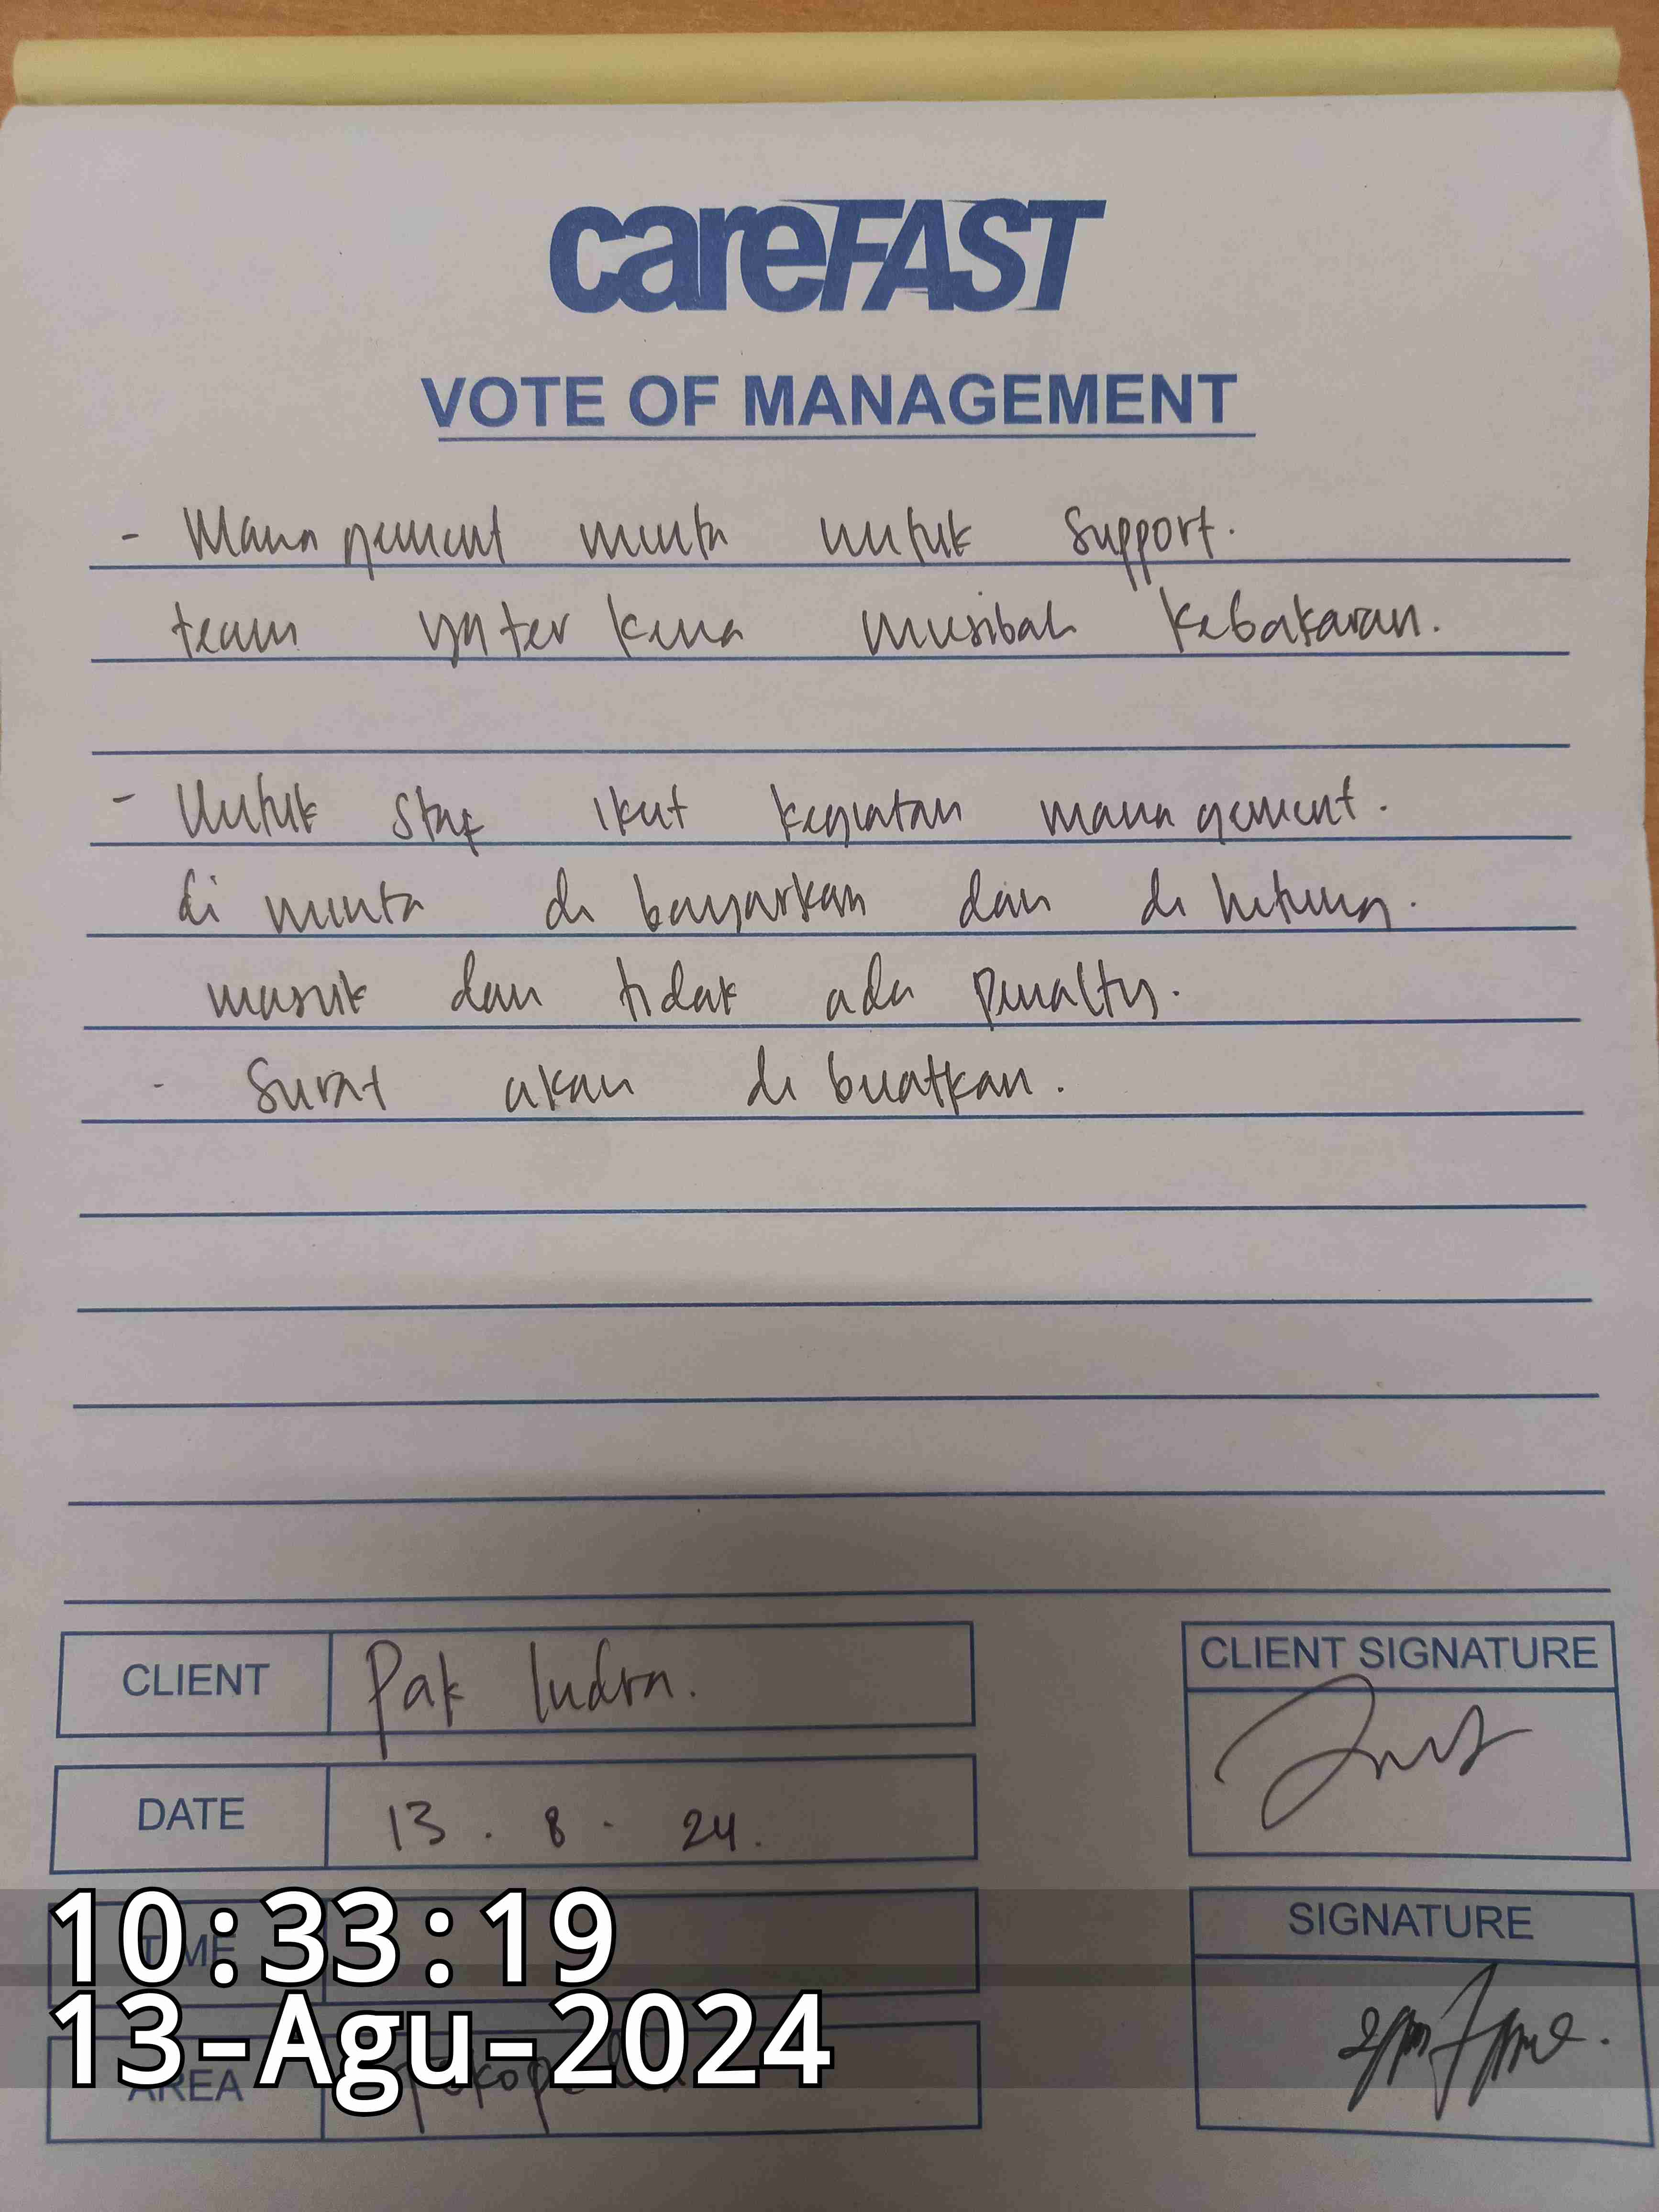 careFAST
VOTE OF MANAGEMENT
- Management minta untuk Support.
team yg terkena musibah kebakaran.
- Untuk staf ikut kegiatan management.
di minta di bayarkan dan di hitung.
masuk dan tidak ada penalty.
- Surat akan di buatkan.
CLIENT Pak Indra.
CLIENT SIGNATURE
DATE 13 . 8 . 24.
TIME
SIGNATURE
AREA
10:33:19
13-Agu-2024